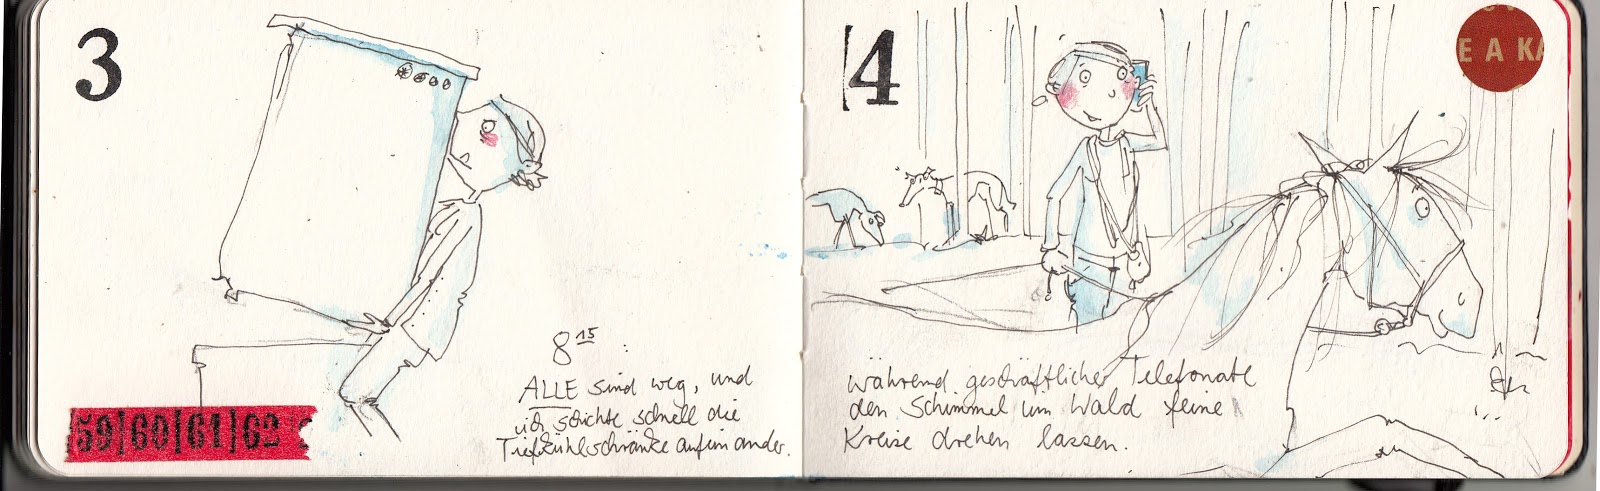 3
8 15
ALLE sind weg, und
ich schichte schnell die
Tiefkühlschränke aufeinander.
59|60|61|62
4
E A KA
während geschäftlicher Telefonate
den Schimmel im Wald feine
Kreise drehen lassen.